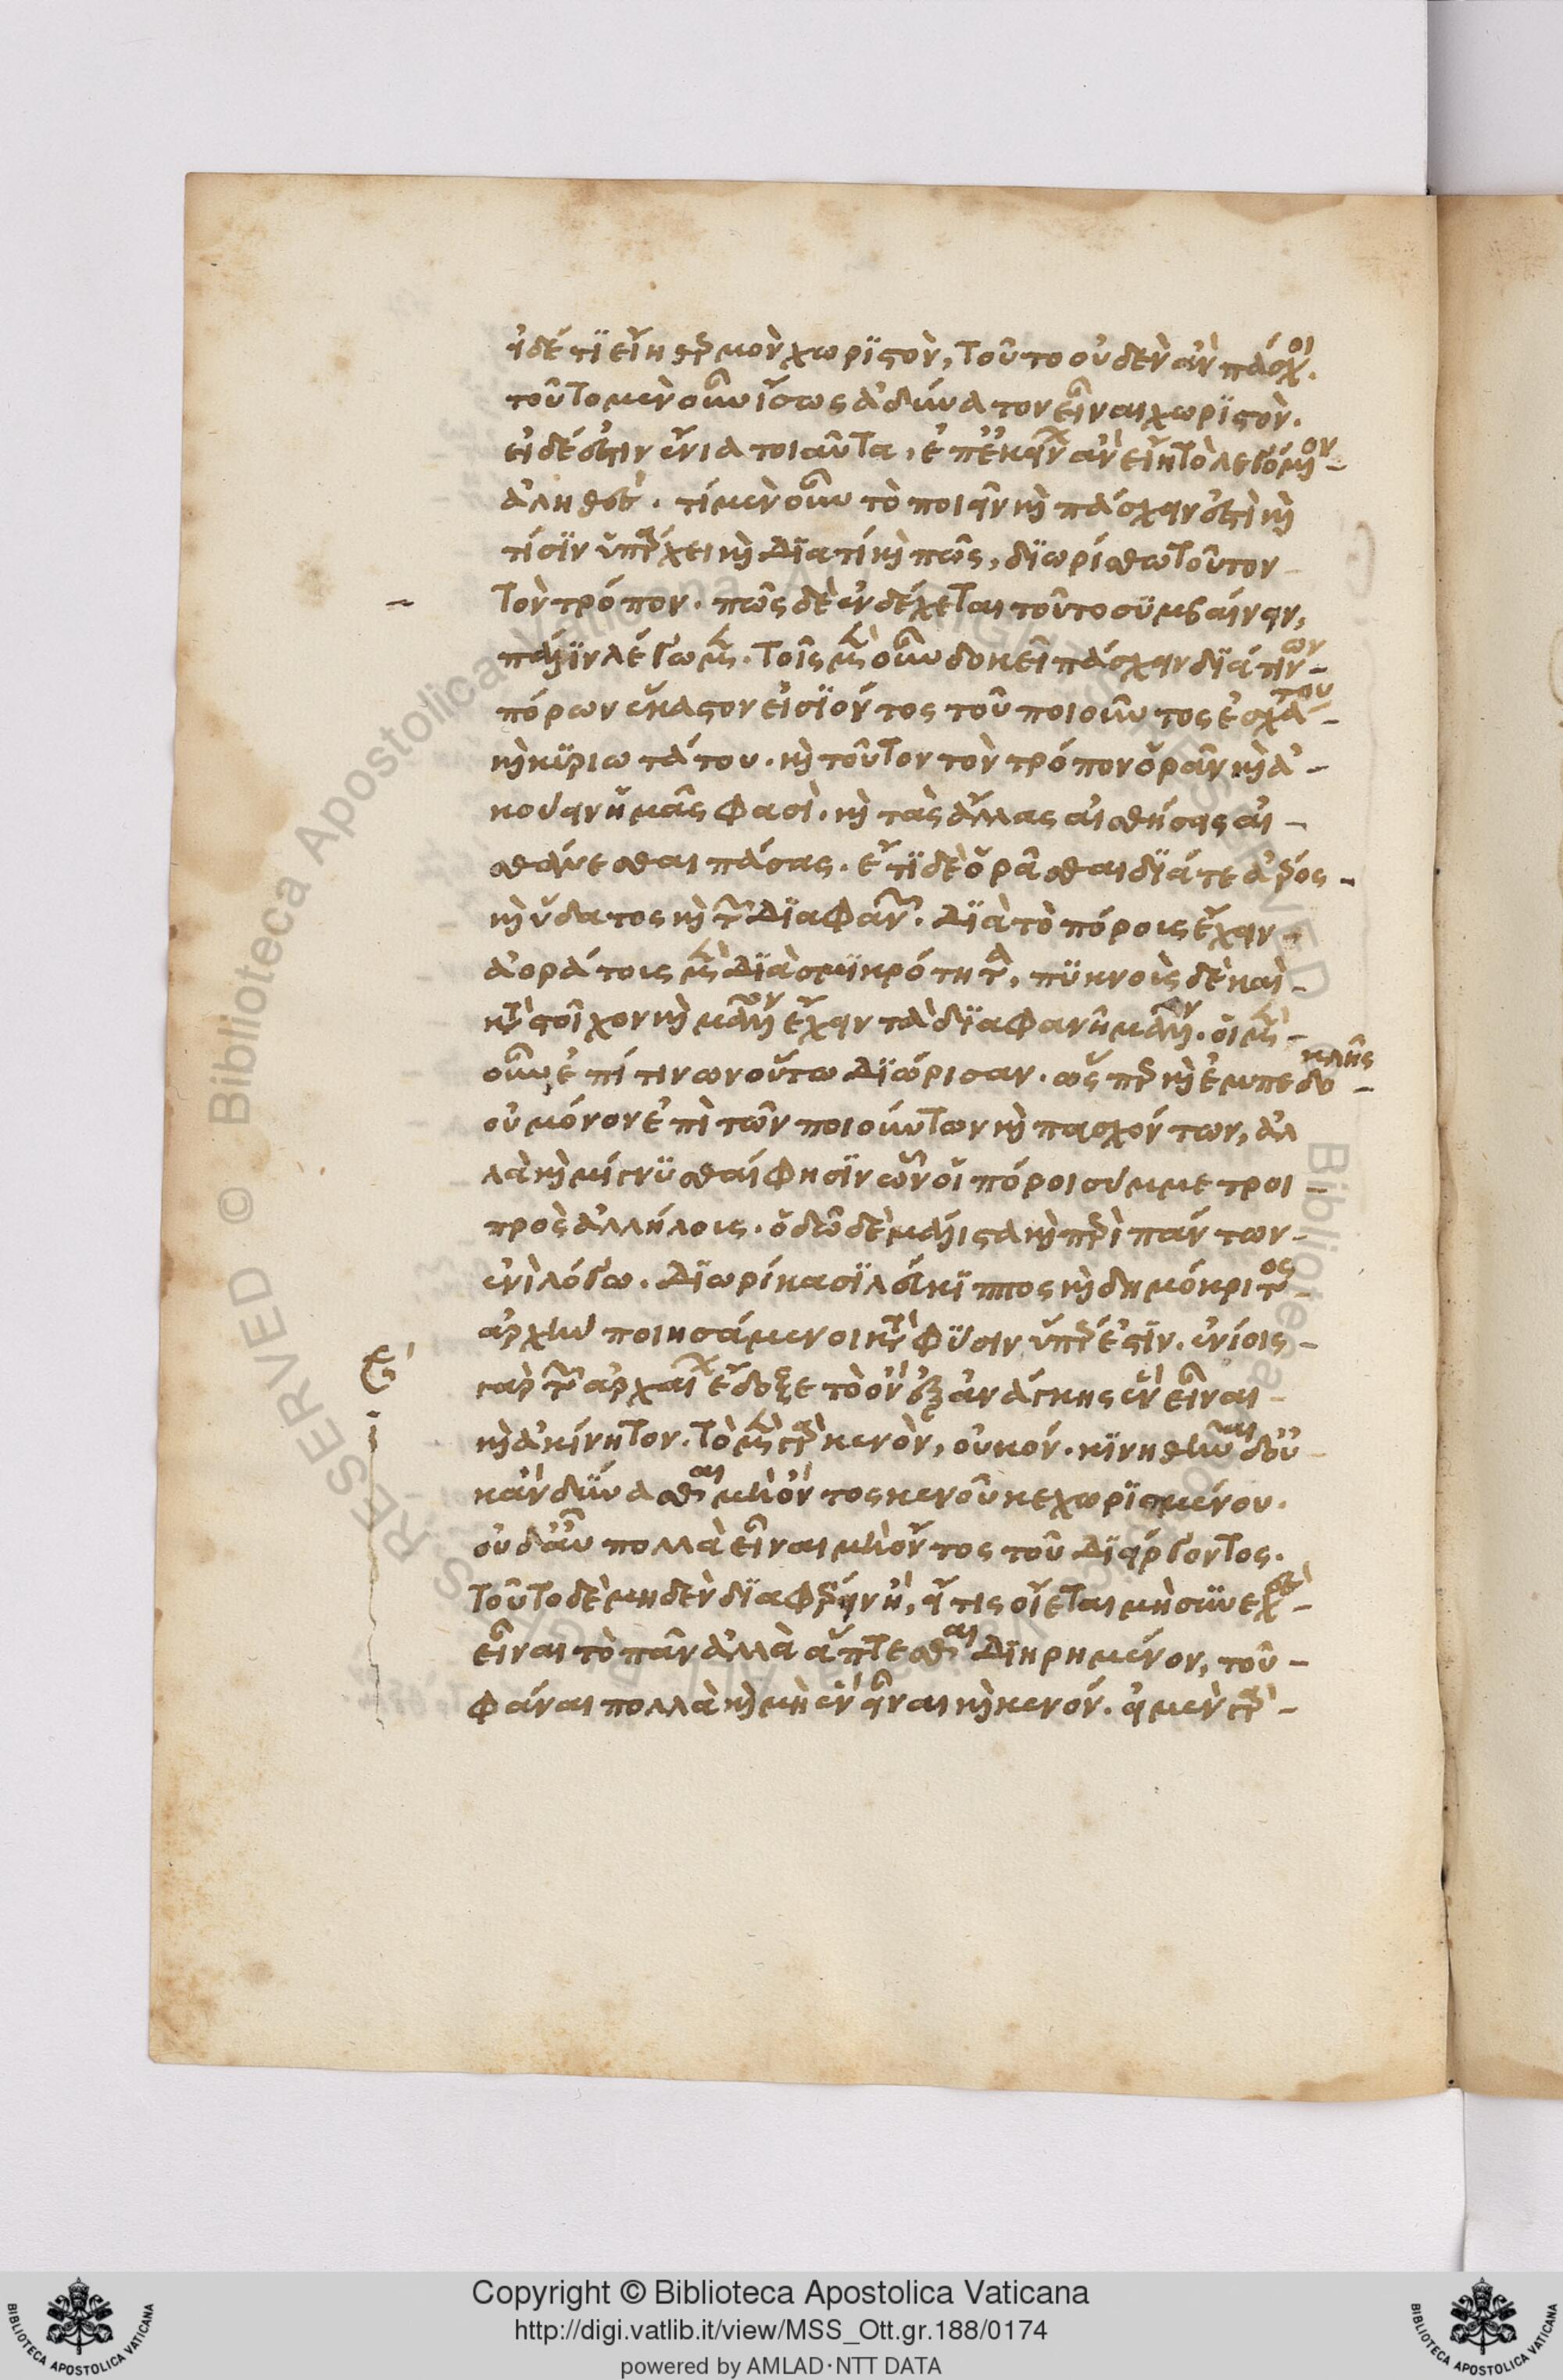 εἰ δέ τι εἴη θερμὸν χωριστὸν, τοῦτο οὐδὲν ἂν πάσχοι.
τοῦτο μὲν οὖν ἴσως ἀδύνατον εἶναι χωριστὸν.
εἰ δέ ἐστιν ἔνια τοιαῦτα, ἐπ' ἐκείνων ἂν εἴη τὸ λεγόμενον
ἀληθὲς. τί μὲν οὖν τὸ ποιεῖν καὶ πάσχειν ἐστὶ καὶ
τίσιν ὑπάρχει καὶ διατί καὶ πῶς, διωρίσθω τοῦτον
τὸν τρόπον. πῶς δὲ ἐνδέχεται τοῦτο συμβαίνειν,
πάλιν λέγωμεν. τοῖς μὲν οὖν δοκεῖ πάσχειν διά τινων
πόρων ἕκαστον εἰσϊόντος τοῦ ποιοῦντος ἐσχάτου
καὶ κυριωτάτου. καὶ τοῦτον τὸν τρόπον ὁρᾶν καὶ ἀ
κούειν ἡμᾶς φασὶ. καὶ τὰς ἄλλας αἰσθήσεις αἰ
σθάνεσθαι πάσας. ἔτι δὲ ὁρᾶσθαι διά τε ἀέρος
καὶ ὕδατος καὶ τῶν διαφανῶν. διὰ τὸ πόρους ἔχειν
ἀοράτους μὲν διὰ σμικρότητα, πυκνοὺς δὲ καὶ
κατὰ στοῖχον καὶ μᾶλλον ἔχειν τὰ διαφανῆ μᾶλλον. οἱ μὲν
οὖν ἐπί τινων οὕτω διώρισαν. ὥσπερ καὶ ἐμπεδοκλῆς
οὐ μόνον ἐπὶ τῶν ποιούντων καὶ πασχόντων, ἀλ
λὰ καὶ μίγνυσθαί φησιν ὧν οἱ πόροι σύμμετροι
πρὸς ἀλλήλους. ὁδῷ δὲ μάλιστα καὶ περὶ πάντων
ἑνὶ λόγω. διωρίκασι λεύκιππος καὶ δημόκριτος
ἀρχὴν ποιησάμενοι κατὰ φύσιν ἥπερ ἐστίν. ἐνίοις
γὰρ τῶν ἀρχαίων ἔδοξε τὸ ὂν ἐξ ἀνάγκης ἓν εἶναι
καὶ ἀκίνητον. τὸ μὲν γὰρ κενὸν, οὐκ ὄν. κινηθῆναι δ' οὐ
κ ἂν δύνασθαι μὴ ὄντος κενοῦ κεχωρισμένου.
οὐδ' ἂν πολλὰ εἶναι μὴ ὄντος τοῦ διείργοντος.
τοῦτο δὲ μηδὲν διαφέρειν ἢ, εἴ τις οἴεται μὴ συνεχὲς
εἶναι τὸ πᾶν ἀλλὰ ἅπτεσθαι διηρημένον, τοῦ
φάναι πολλὰ καὶ μὴ ἓν εἶναι καὶ κενόν. εἰ μὲν γὰρ
Copyright © Biblioteca Apostolica Vaticana
http://digi.vatlib.it/view/MSS_Ott.gr.188/0174
powered by AMLAD·NTT DATA
BIBLIOTECA APOSTOLICA VATICANA
BIBLIOTECA APOSTOLICA VATICANA